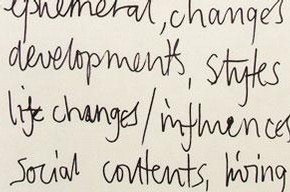 ephemeral, changes
developments, styles
life changes/influences
social contents, living